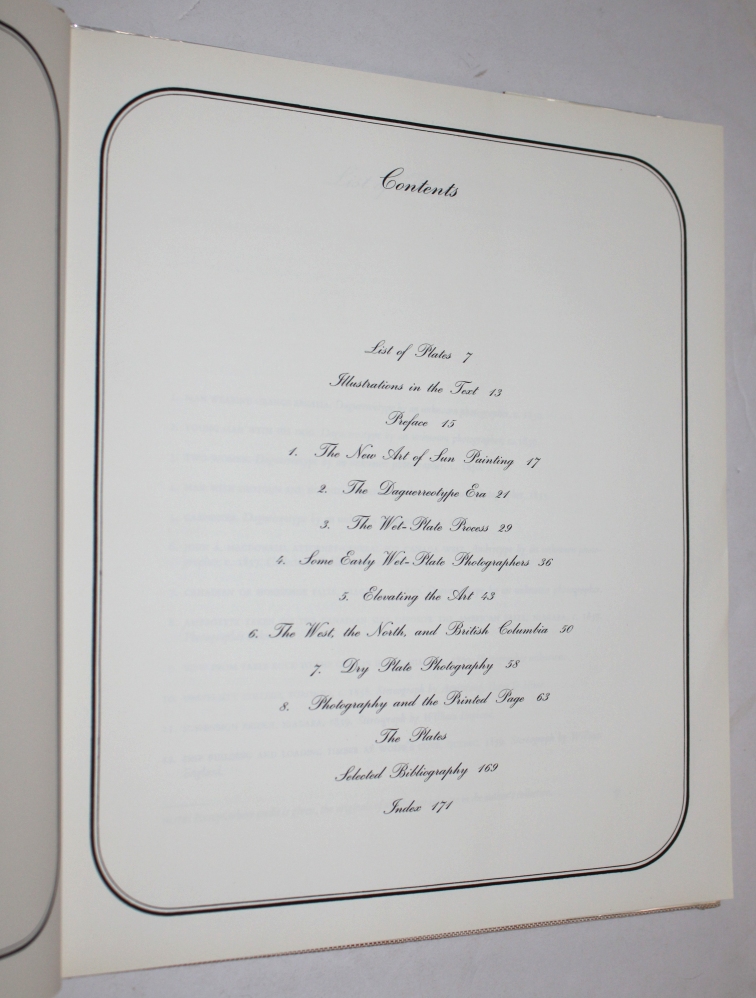 Contents
List of Plates 7
Illustrations in the Text 13
Preface 15
1. The New Art of Sun Painting 17
2. The Daguerreotype Era 21
3. The Wet-Plate Process 29
4. Some Early Wet-Plate Photographers 36
5. Elevating the Art 43
6. The West, the North, and British Columbia 50
7. Dry Plate Photography 58
8. Photography and the Printed Page 63
The Plates
Selected Bibliography 169
Index 171